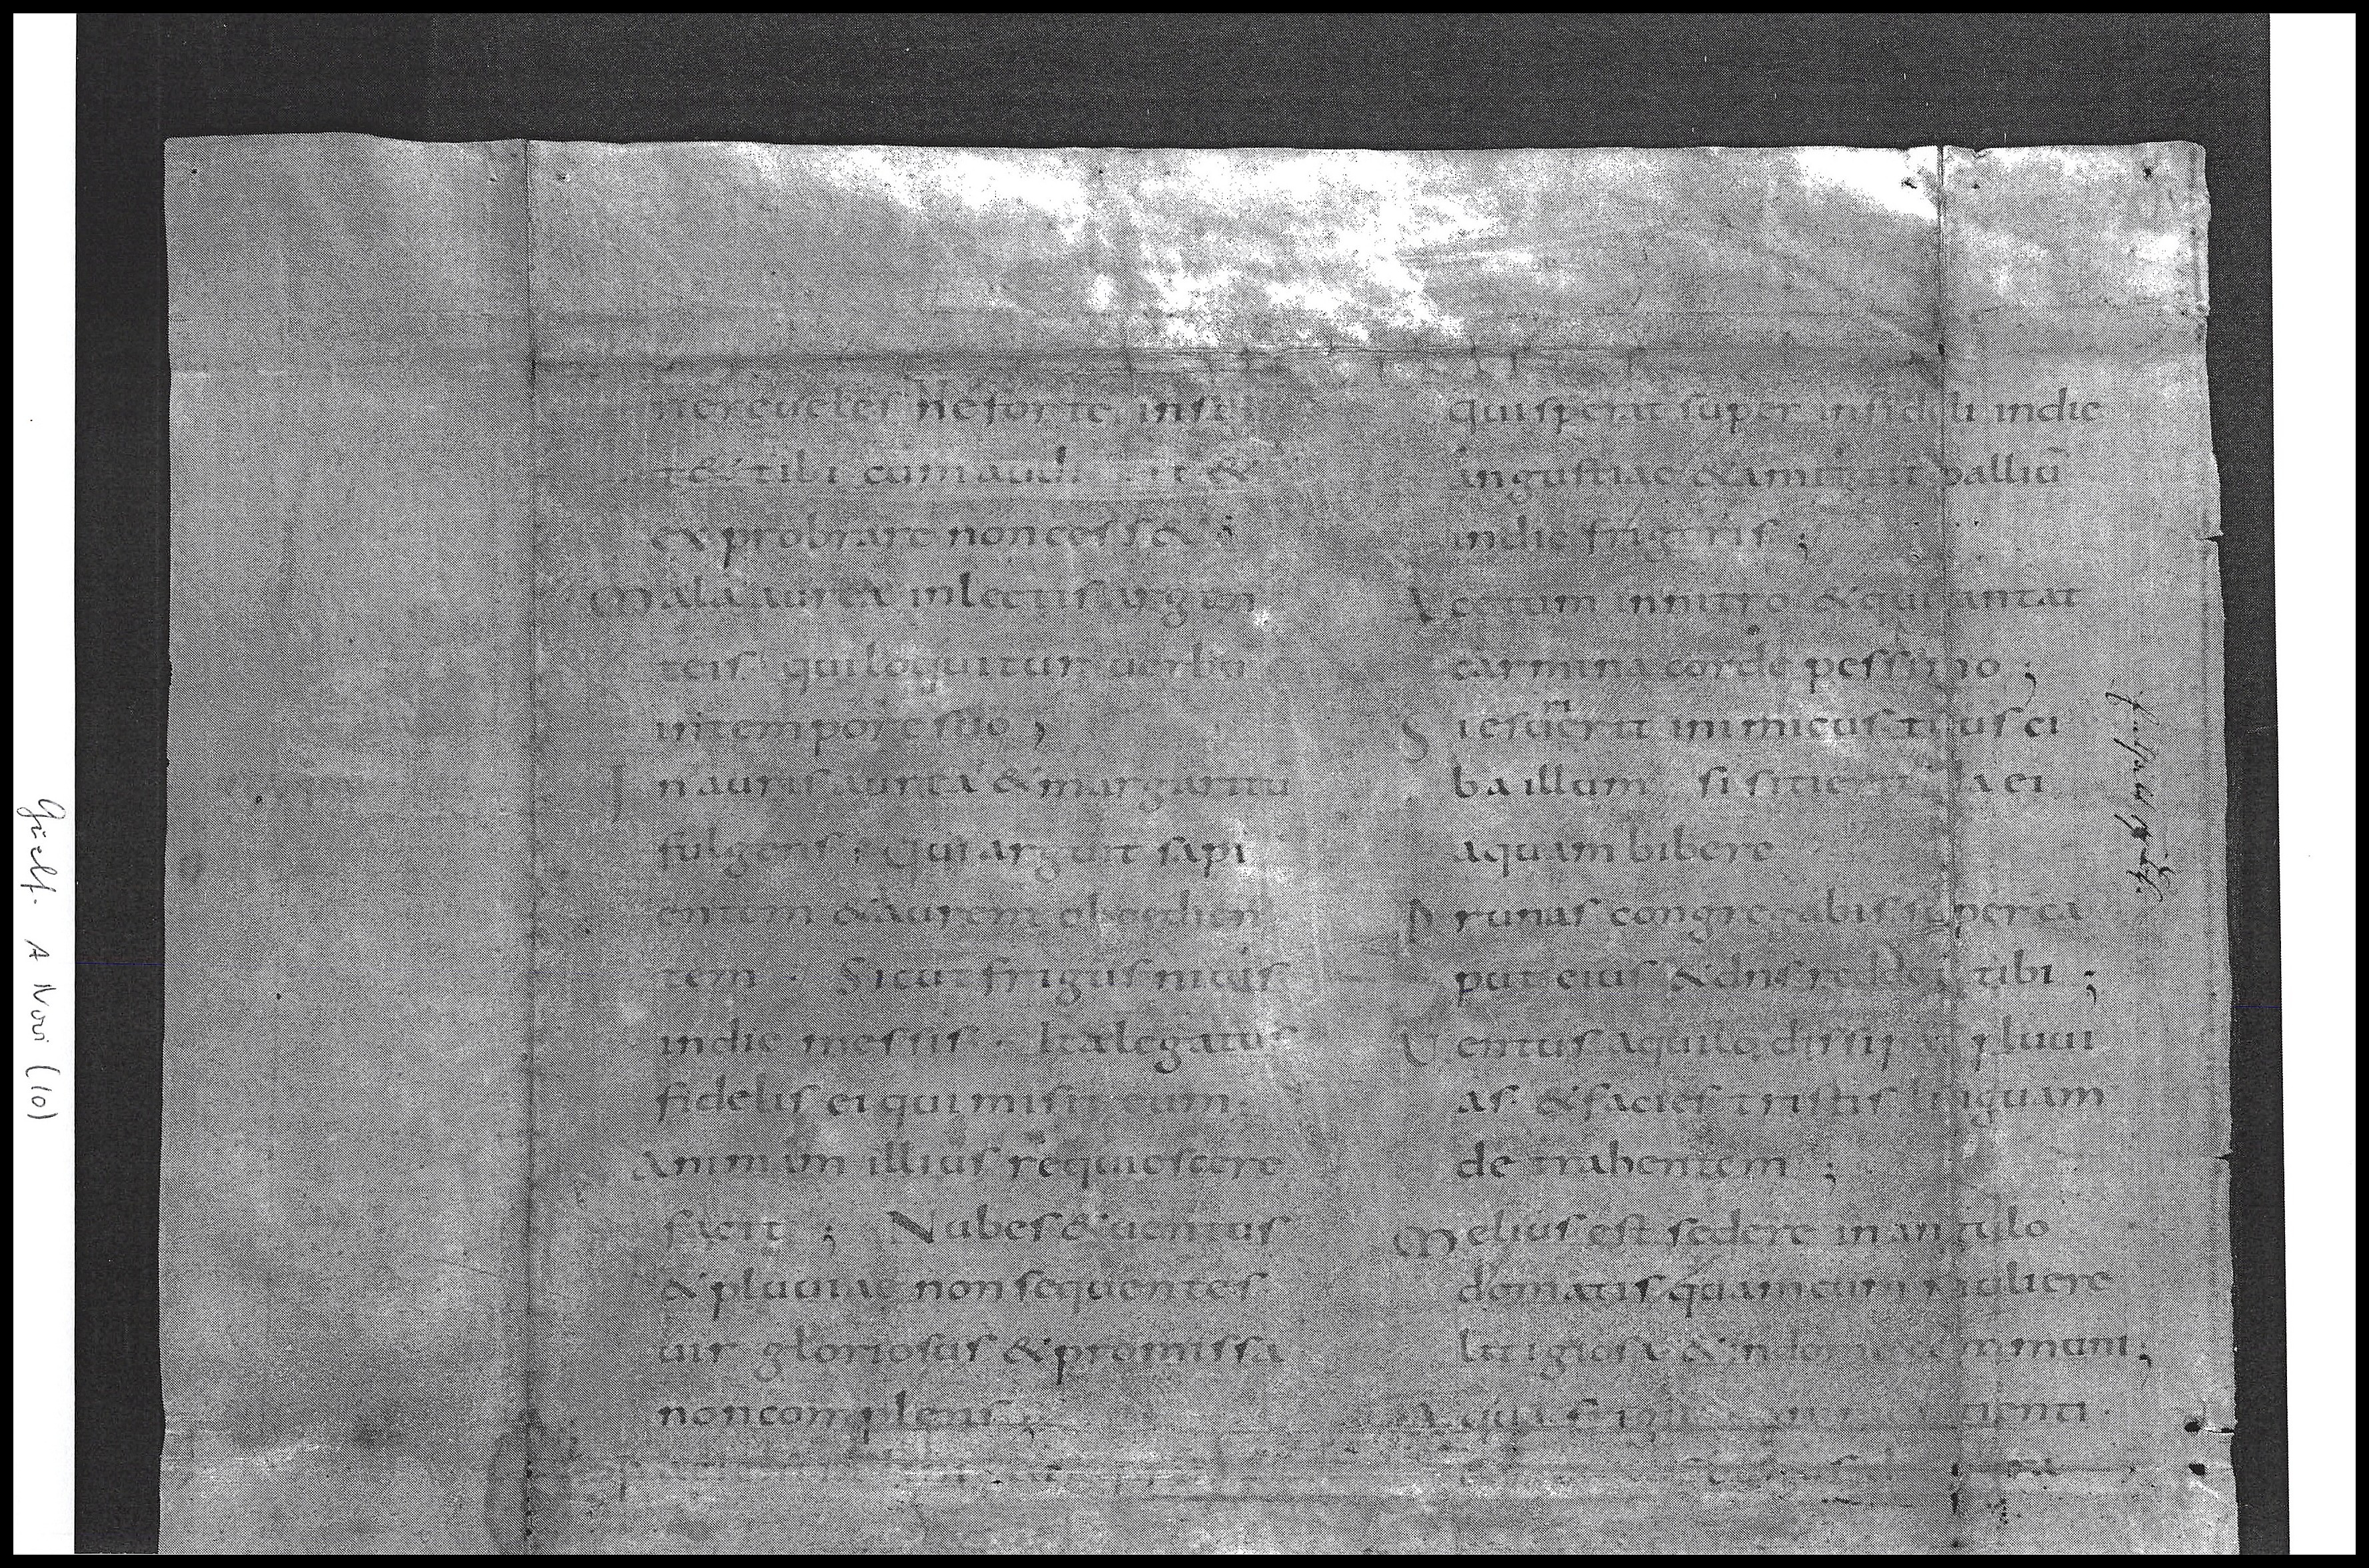 nereueles ne forte insul
t& tibi cum audierit &
exprobrare non cess&;
Mala aurea in lectis argen
teis qui loquitur uerbu
in tempore suo;
Inauris aurea & margaritu
fulgens; Qui arguit sapi
entem & aurem oboedien
tem. Sicut frigus niuis
in die messis. Ita legatus
fidelis ei qui misit eum.
Animam illius requiescere
facit; Nubes & uentus
& pluuiae non sequentes
uir gloriosus & promissa
non complens
qui sperat super infideli in die
angustiae & amittit palliū
in die frigoris;
Acetum in nitro & qui cantat
carmina corde pessimo;
Si esurierit inimicus tuus ci
ba illum si sitierit da ei
aquam bibere
Prunas congregabis super ca
put eius & dns reddet tibi;
Uentus aquilo dissipat pluui
as & facies tristis linguam
detrahentem;
Melius est sedere in angulo
domatis quam cum muliere
litigiosa & in domo communi,
Aqua sitienti
Guelf. A Novi (10)